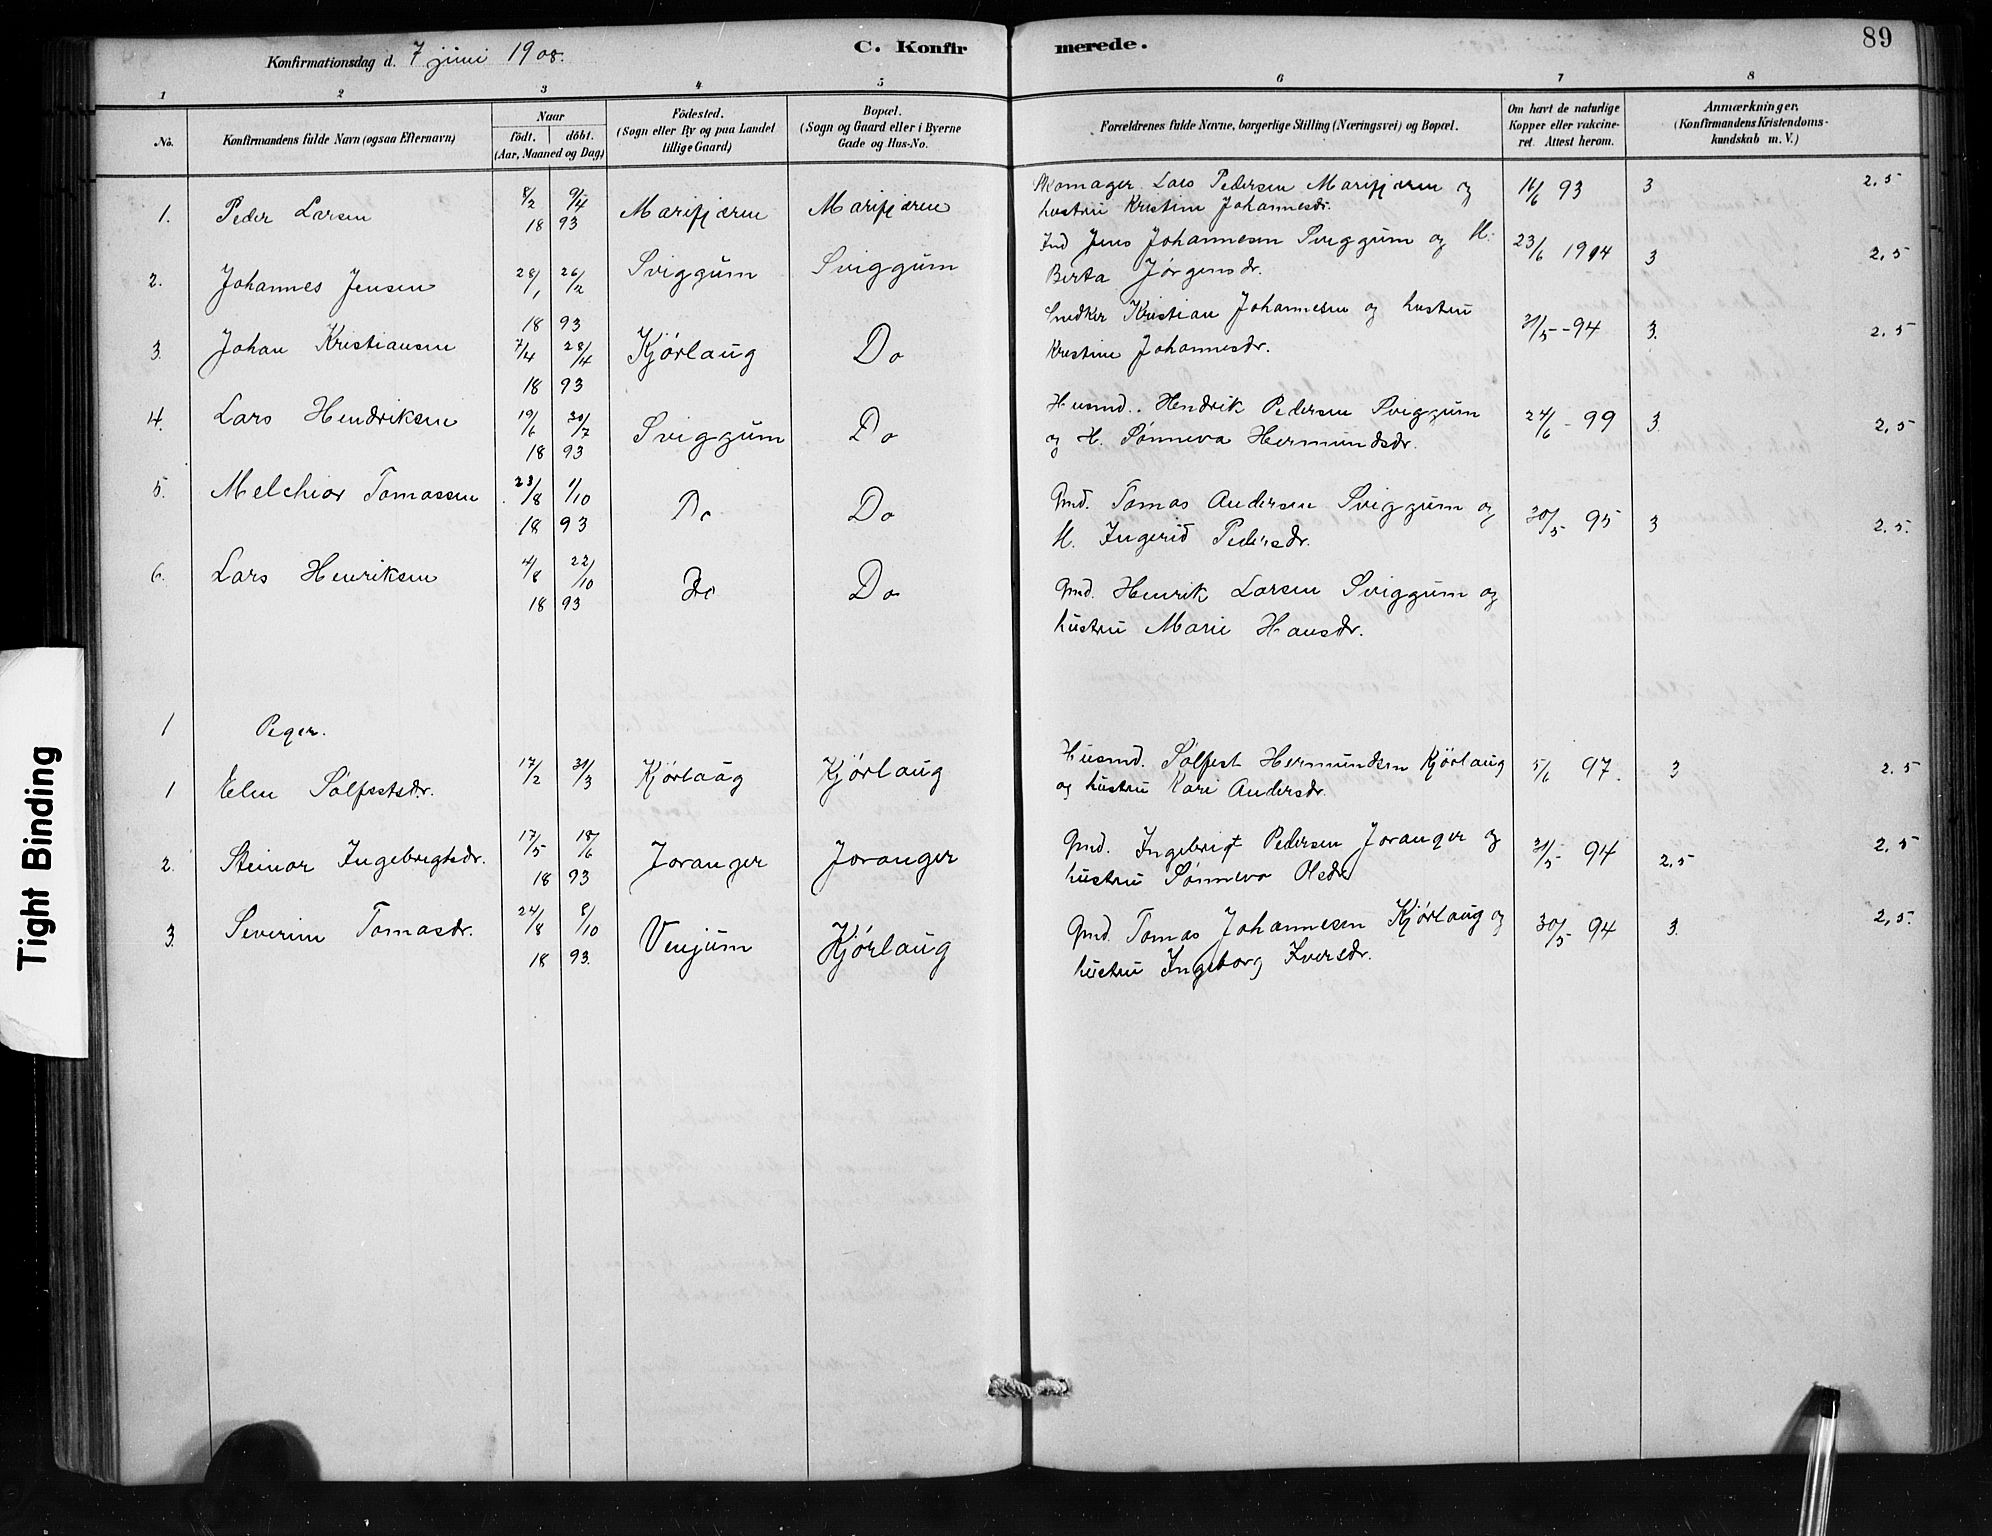 Konfirmationsdag d. 7 juni 1908.
C. Konfirmerede.
89
1 2 3 4 5 6 7 8
No.
Konfirmandens fulde Navn (ogsaa Efternavn)
Naar
födt. döbt.
(Aar, Maaned og Dag)
Födested.
(Sogn eller By og paa Landet
tillige Gaard)
Bopæl.
(Sogn og Gaard eller i Byerne
Gade og Hus-No.
Forældrenes fulde Navne, borgerlige Stilling (Næringsvei) og Bopæl.
Om havt de naturlige
Kopper eller vakcine-
ret. Attest herom.
Anmærkninger,
(Konfirmandens Kristendoms-
kundskab m. V.)
1. Peder Larsen 8/2 9/4 18 93 Marifjæren Marifjæren
Skomager Lars Pedersen Marifjæren og
hustru Kristine Johannesdr. 16/6 93 3 2,5
2. Johannes Jensen 28/1 26/2 18 93 Sviggum Sviggum
Ind Jens Johannesen Sviggum og H.
Berta Jørgensdr. 23/6 1904 3 2,5
3. Johan Kristiansen 7/4 28/4 18 93 Kjørlaug Do
Snedker Kristian Johannesen og hustru
Kristine Johannesdr. 31/5-94 3. 2,5
4. Lars Hendriksen 19/6 30/7 18 93 Sviggum Do
Husmd. Hendrik Pedersen Sviggum
og H. Sønneva Hermundsdr. 24/6 - 99 3. 2,5
5. Melchior Tomassen 23/8 1/10 18 93 Do Do
Gmd. Tomas Andersen Sviggum og
H. Ingerid Pedersdr. 30/5 95 3 2,5.
6. Lars Henriksen 4/8 22/10 18 93 Do Do
Gmd. Henrik Larsen Sviggum og
hustru Marie Hansdr.
1 Peger.
1 Elen Sølfestsdr. 17/2 31/3 Kjørlaug Kjørlaug
Husmd. Sølfest Hermundsen Kjørlaug
og hustru Kari Andersdr. 5/6 97. 3 2.5
2. Steinor Ingebregtsdr. 17/5 18/6 18 93 Joranger Joranger
Gmd. Ingebrigt Pedersen Joranger og
hustru Sønneva Olsdr 31/5 94 2,5 2,5
3. Severine Tomasdr. 24/8 8/10 18 93. Venjum Kjørlaug
Gmd. Tomas Johannesen Kjørlaug og
hustru Ingeborg Iversdr. 30/5 94 3. 2,5.
Tight Binding